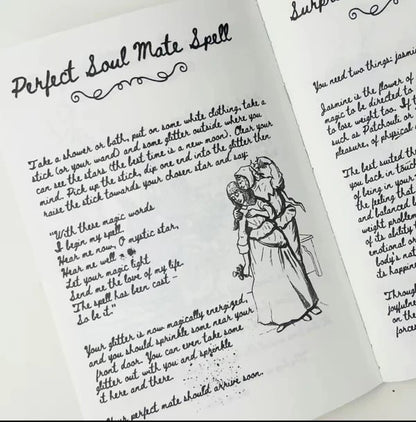 Perfect Soul Mate Spell
Take a shower or bath, put on some white clothing, take a
stick (or your wand) and some glitter outside where you
can see the stars (the best time is a new moon). Clear your
mind. Pick up the stick, dip one end into the glitter then
raise the stick towards your chosen star and say:
"With these magic words
I begin my spell.
Hear me now, O mystic star,
Hear me well -
Let your magic light
Send me the love of my life.
The spell has been cast -
So be it."
Your glitter is now magically energized,
and you should sprinkle some near your
front door. You can even take some
glitter out with you and sprinkle
it here and there.
Your perfect mate should arrive soon.
You need two things: jasmi
Jasmine is the flower of
magic to be directed to
to lose weight too. If
such as Patchouli or
pleasures of physical
The best suited th
you back in touc
of being in your
the feeling that
and balanced b
weight proble
of its ability
emotional o
body's nat
its happi
Throug
joyfulne
on the
force